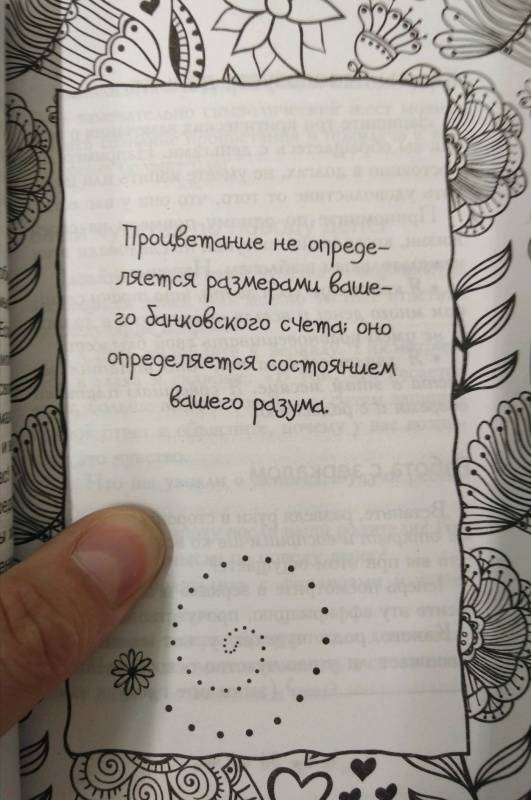 Процветание не опреде-
ляется размерами ваше-
го банковского счета; оно
определяется состоянием
вашего разума.